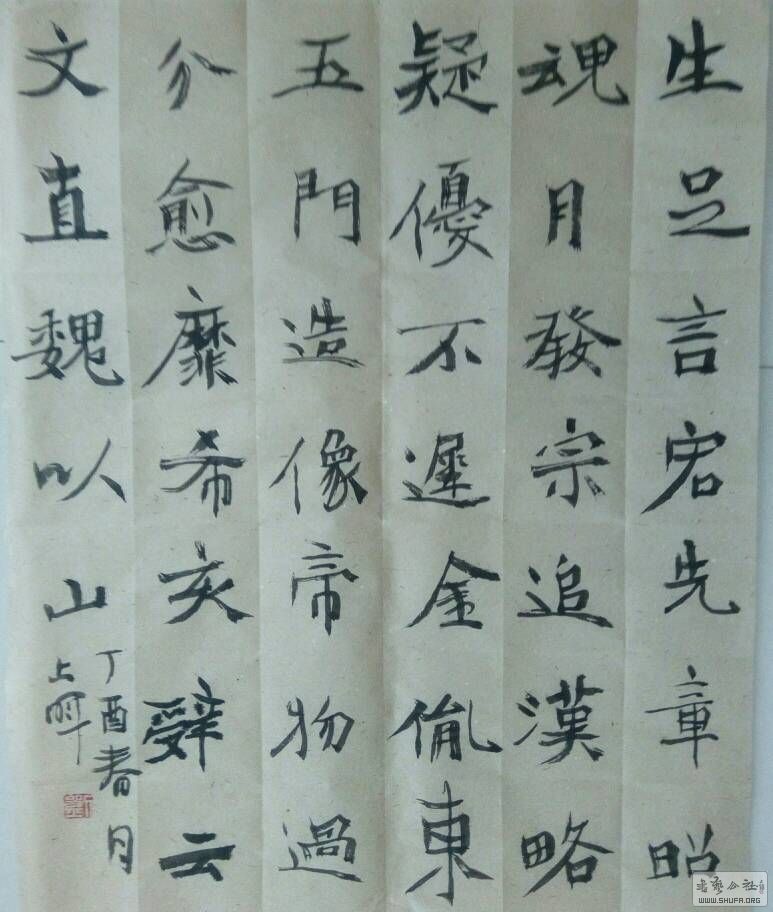 生足言宕先章昭
魂月發宗追漢略
疑優不遲金胤東
五門造像帝物過
分愈靡希亥辤云
文直魏以山
丁酉春月
上
WWW.SHUFA.ORG